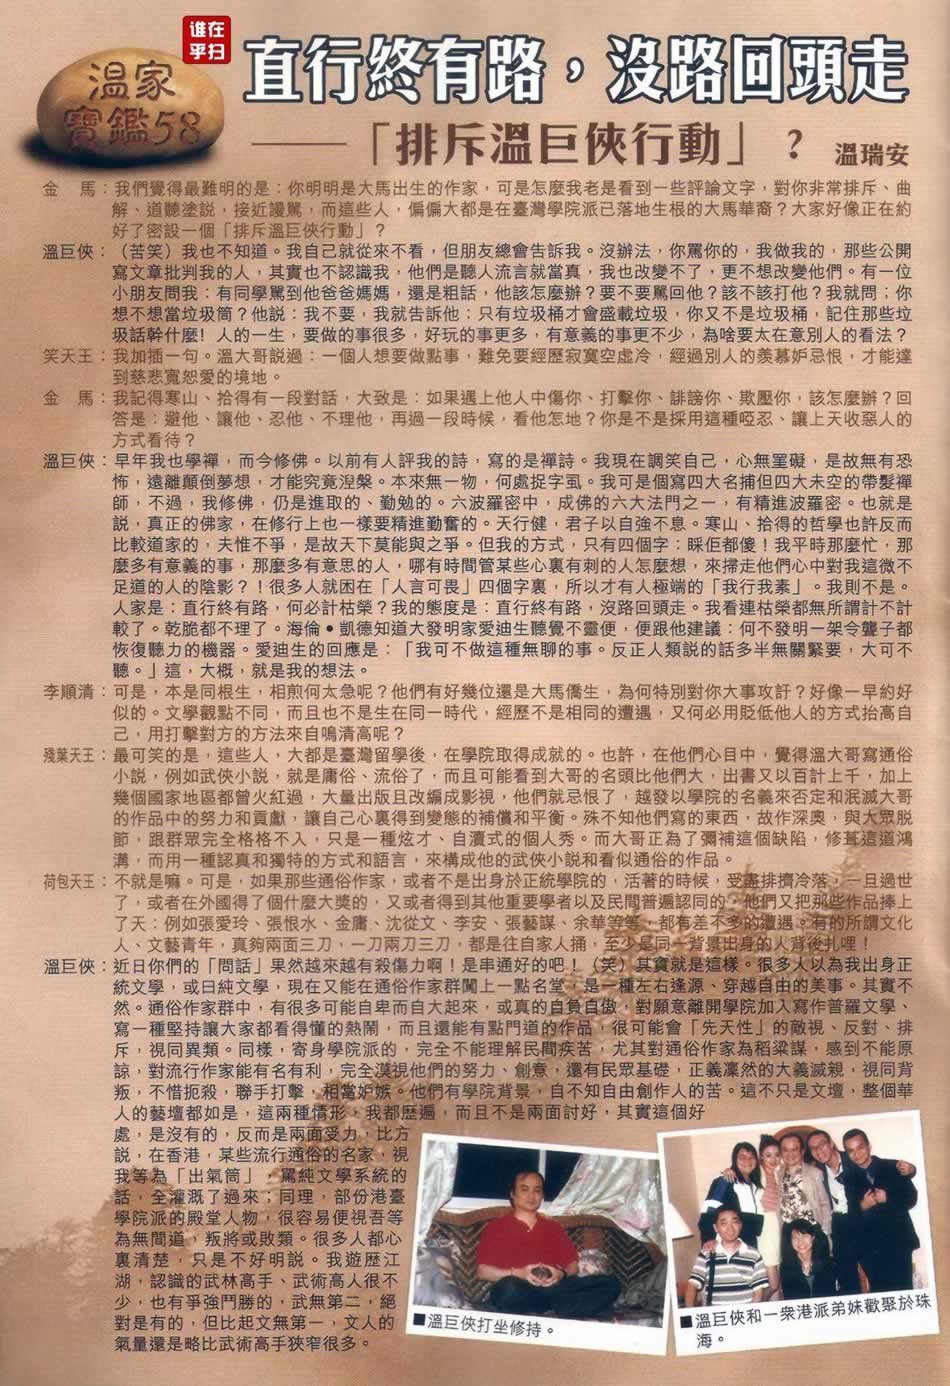 谁在
乎扫
溫家
寶鑑58
直行終有路，沒路回頭走
——「排斥溫巨俠行動」？ 溫瑞安
金　馬：我們覺得最難明的是：你明明是大馬出生的作家，可是怎麼我老是看到一些評論文字，對你非常排斥、曲
解、道聽塗説，接近謾罵，而這些人，偏偏大都是在臺灣學院派已落地生根的大馬華裔？大家好像正在約
好了密設一個「排斥溫巨俠行動」？
溫巨俠：（苦笑）我也不知道。我自己就從來不看，但朋友總會告訴我。沒辦法，你罵你的，我做我的，那些公開
寫文章批判我的人，其實也不認識我，他們是聽人流言就當真，我也改變不了，更不想改變他們。有一位
小朋友問我：有同學罵到他爸爸媽媽，還是粗話，他該怎麼辦？要不要罵回他？該不該打他？我就問：你
想不想當垃圾筒？他説：我不要，我就告訴他：只有垃圾桶才會盛載垃圾，你又不是垃圾桶，記住那些垃
圾話幹什麼！人的一生，要做的事很多，好玩的事更多，有意義的事更不少，為啥要太在意別人的看法？
笑天王：我加插一句。溫大哥説過：一個人想要做點事，難免要經歷寂寞空虛冷，經過別人的羨慕妒忌恨，才能達
到慈悲寬恕愛的境地。
金　馬：我記得寒山、拾得有一段對話，大致是：如果遇上他人中傷你、打擊你、誹謗你、欺壓你，該怎麼辦？回
答是：避他、讓他、忍他、不理他，再過一段時候，看他怎地？你是不是採用這種啞忍、讓上天收惡人的
方式看待？
溫巨俠：早年我也學禪，而今修佛。以前有人評我的詩，寫的是禪詩。我現在調笑自己，心無罣礙，是故無有恐
怖，遠離顛倒夢想，才能究竟涅槃。本來無一物，何處捉字虱。我可是個寫四大名捕但四大未空的帶髮禪
師，不過，我修佛，仍是進取的、勤勉的。六波羅密中，成佛的六大法門之一，有精進波羅密。也就是
説，真正的佛家，在修行上也一樣要精進勤奮的。天行健，君子以自強不息。寒山、拾得的哲學也許反而
比較道家的，夫惟不爭，是故天下莫能與之爭。但我的方式，只有四個字：睬佢都傻！我平時那麼忙，那
麼多有意義的事，那麼多有意思的人，哪有時間管某些心裏有刺的人怎麼想，來掃走他們心中對我這微不
足道的人的陰影？！很多人就困在「人言可畏」四個字裏，所以才有人極端的「我行我素」。我則不是。
人家是：直行終有路，何必計枯榮？我的態度是：直行終有路，沒路回頭走。我看連枯榮都無所謂計不計
較了。乾脆都不理了。海倫•凱德知道大發明家愛迪生聽覺不靈便，便跟他建議：何不發明一架令聾子都
恢復聽力的機器。愛迪生的回應是：「我可不做這種無聊的事。反正人類説的話多半無關緊要，大可不
聽。」這，大概，就是我的想法。
李順清：可是，本是同根生，相煎何太急呢？他們有好幾位還是大馬僑生，為何特別對你大事攻訐？好像一早約好
似的。文學觀點不同，而且也不是生在同一時代，經歷不是相同的遭遇，又何必用貶低他人的方式抬高自
己，用打擊對方的方法來自鳴清高呢？
殘葉天王：最可笑的是，這些人，大都是臺灣留學後，在學院取得成就的。也許，在他們心目中，覺得溫大哥寫通俗
小説，例如武俠小説，就是庸俗、流俗了，而且可能看到大哥的名頭比他們大，出書又以百計上千，加上
幾個國家地區都曾火紅過，大量出版且改編成影視，他們就忌恨了，越發以學院的名義來否定和泯滅大哥
的作品中的努力和貢獻，讓自己心裏得到變態的補償和平衡。殊不知他們寫的東西，故作深奧，與大眾脱
節，跟群眾完全格格不入，只是一種炫才、自瀆式的個人秀。而大哥正為了彌補這個缺陷，修葺這道鴻
溝，而用一種認真和獨特的方式和語言，來構成他的武俠小説和看似通俗的作品。
荷包天王：不就是嘛。可是，如果那些通俗作家，或者不是出身於正統學院的，活著的時候，受盡排擠冷落，一旦過世
了，或者在外國得了個什麼大獎的，又或者得到其他重要學者以及民間普遍認同的，他們又把那些作品捧上
了天：例如張愛玲、張恨水、金庸、沈從文、李安、張藝謀、余華等等，都有差不多的遭遇。有的所謂文化
人、文藝青年，真夠兩面三刀，一刀兩刀三刀，都是往自家人捅，至少是同一背景出身的人背後扎哩！
溫巨俠：近日你們的「問話」果然越來越有殺傷力啊！是串通好的吧！（笑）其實就是這樣。很多人以為我出身正
統文學，或曰純文學，現在又能在通俗作家群闖上一點名堂，是一種左右逢源、穿越自由的美事。其實不
然。通俗作家群中，有很多可能自卑而自大起來，或真的自負自傲，對願意離開學院加入寫作普羅文學、
寫一種堅持讓大家都看得懂的熱鬧，而且還能有點門道的作品，很可能會「先天性」的敵視、反對、排
斥，視同異類。同樣，寄身學院派的，完全不能理解民間疾苦，尤其對通俗作家為稻粱謀，感到不能原
諒，對流行作家能有名有利，完全漠視他們的努力、創意，還有民眾基礎，正義凜然的大義滅親，視同背
叛，不惜扼殺，聯手打擊，相當妒嫉。他們有學院背景，自不知自由創作人的苦。這不只是文壇，整個華
人的藝壇都如是，這兩種情形，我都歷遍，而且不是兩面討好，其實這個好
處，是沒有的，反而是兩面受力，比方
説，在香港，某些流行通俗的名家，視
我等為「出氣筒」，罵純文學系統的
話，全灌溉了過來；同理，部份港臺
學院派的殿堂人物，很容易便視吾等
為無間道，叛將或敗類。很多人都心
裏清楚，只是不好明説。我遊歷江
湖，認識的武林高手、武術高人很不
少，也有爭強鬥勝的，武無第二，絕
對是有的，但比起文無第一，文人的
氣量還是略比武術高手狹窄很多。
■溫巨俠打坐修持。
■溫巨俠和一衆港派弟妹歡聚於珠
海。